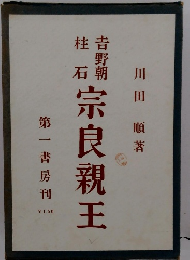 川田順著
吉野朝
柱石
宗良親王
第一書房刊